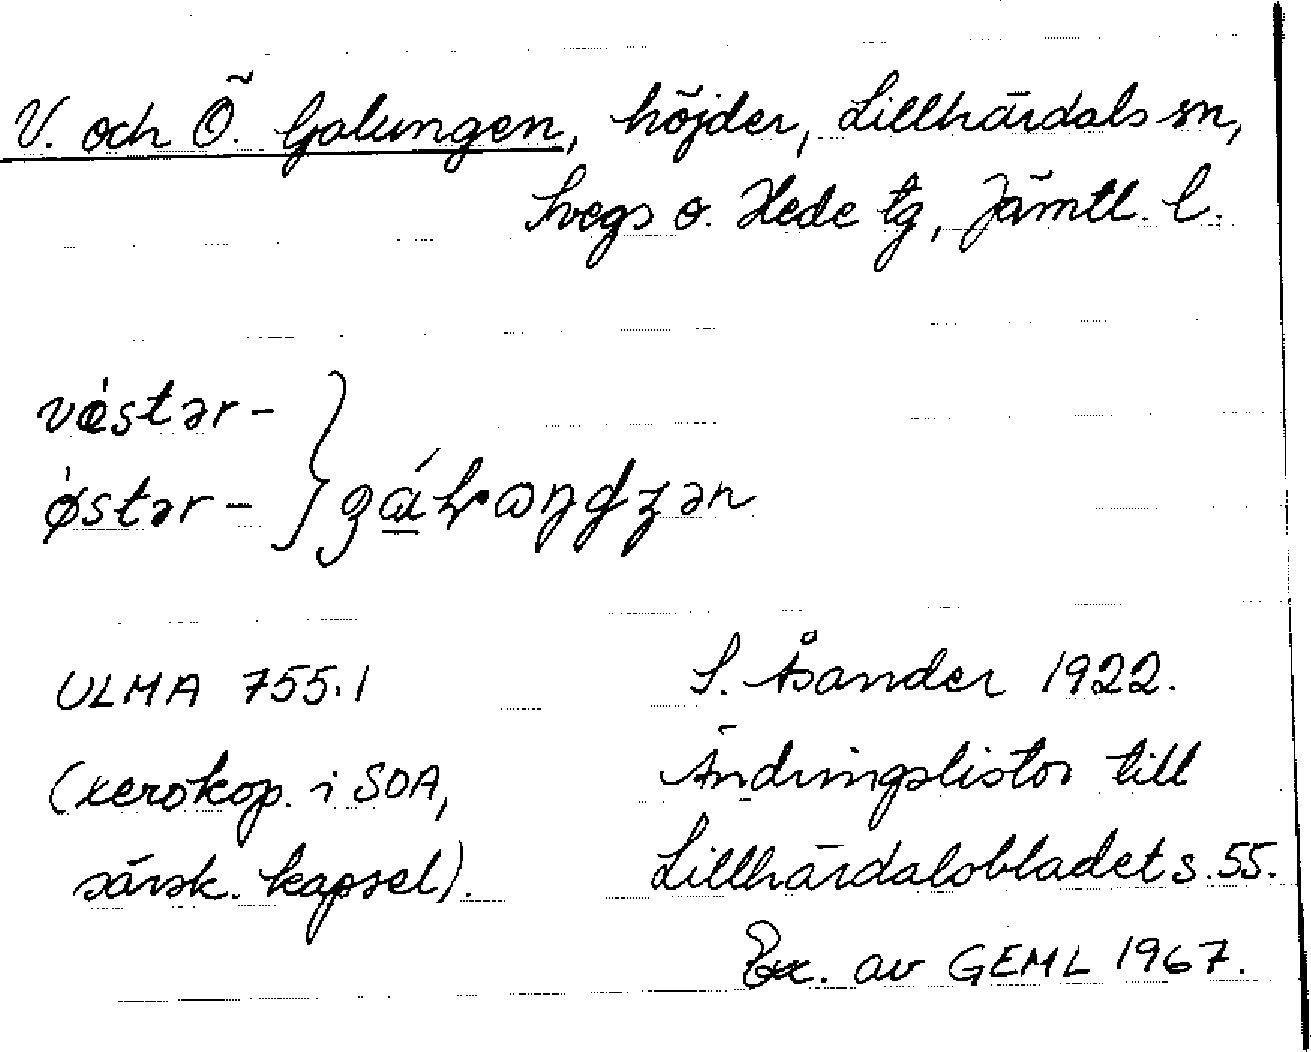 V. och Ö. Galungen, höjder, Lillhärdals sn,
Svegs o. Hede tg, Jämtl. l.
västər-
ǿstər-
ULMA 755.1
S. Åsander 1922.
(xerokop. i SOA,
Ändringslistor till
särsk. kapsel).
Lillhärdalsbladet s. 55.
Exc. av GEML 1967.